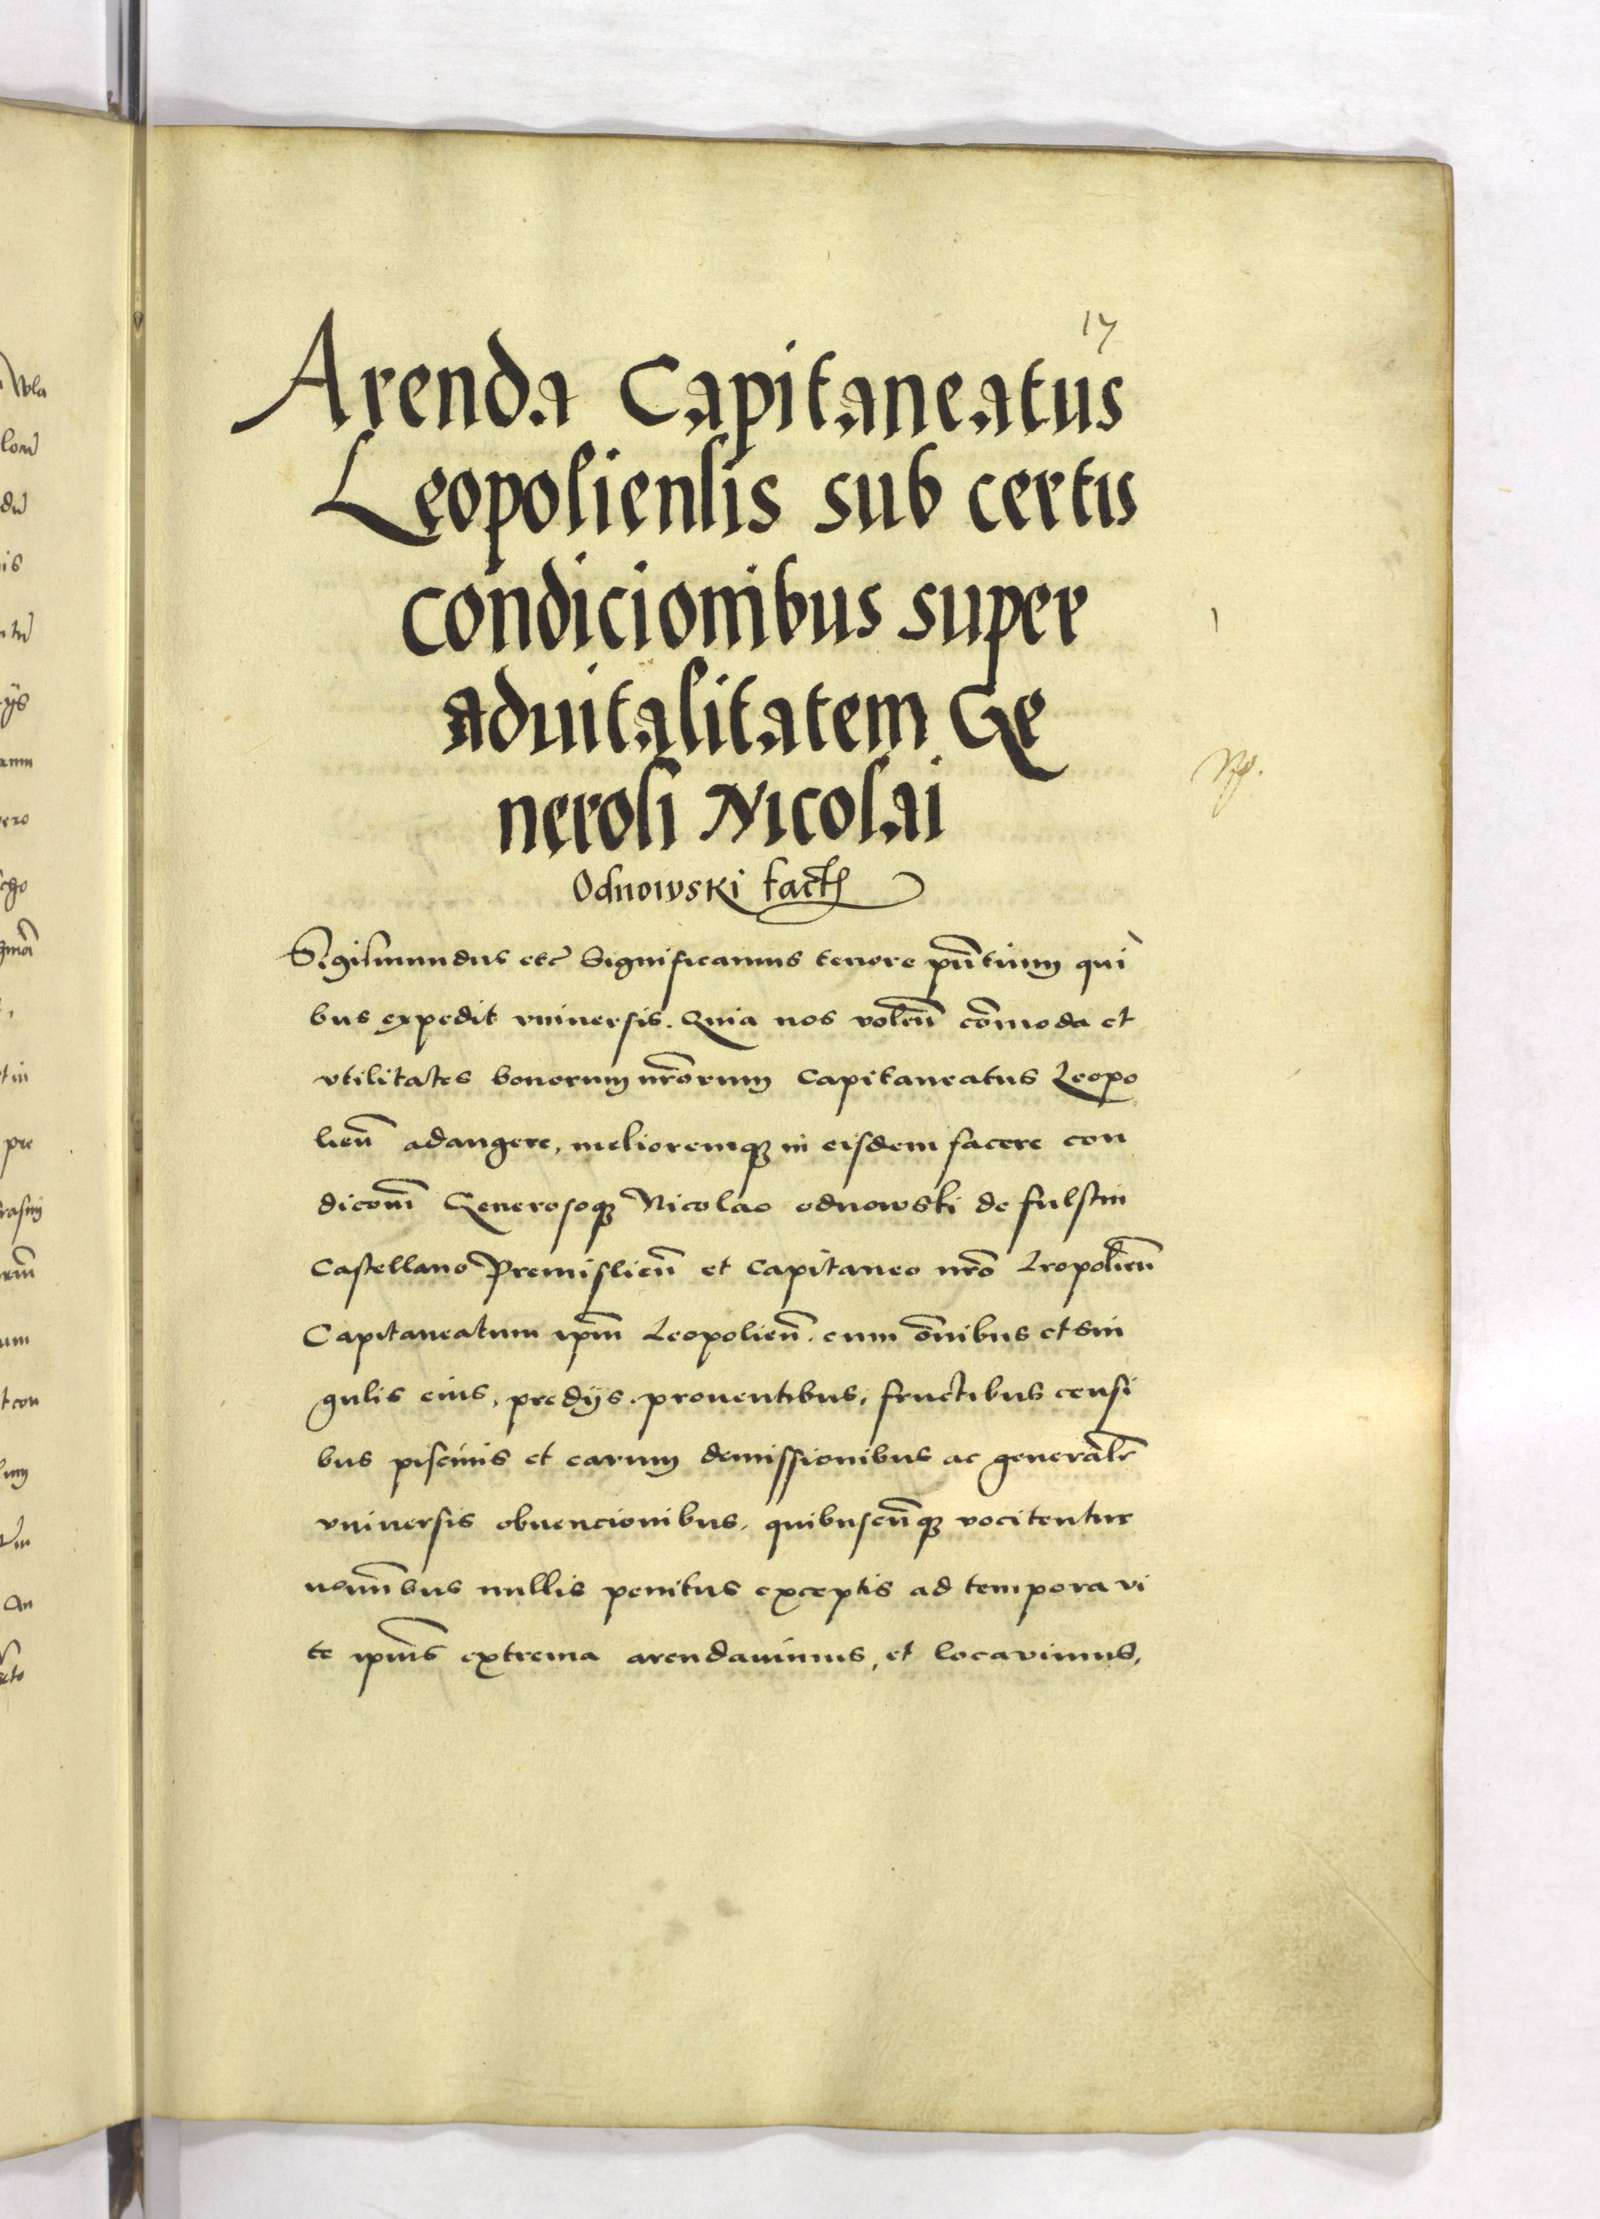 17
Arenda Capitaneatus
Leopoliensis sub certis
condicionibus super
aduitalitatem Ge
nerosi Nicolai
Odnowski fact
Sigismundus etc Significamus tenore pn̄tium qui
bus expedit vniuersis. Quia nos volen̄ com̄oda et
vtilitates bonorum nr̄orum Capitaneatus Leopo
lien̄ adaugere, melioremqꝫ in eisdem facere con
dicōm̄ Generosoqꝫ Nicolao odnowski de fulstin
Castellano Premislien̄ et Capitaneo nr̄o Leopolien̄
Capitaneatum ipm̄ Leopolien̄. cum om̄nibus et sin
gulis eius, predijs. prouentibus, fructibus censi
bus piscinis et earum demissionibus ac generalr̄
vniuersis obuencionibus, quibuscūnqꝫ vocitentur
nomīnbus nullis penitus exceptis ad tempora vi
te ipīus extrema arendauimus, et locavimus,